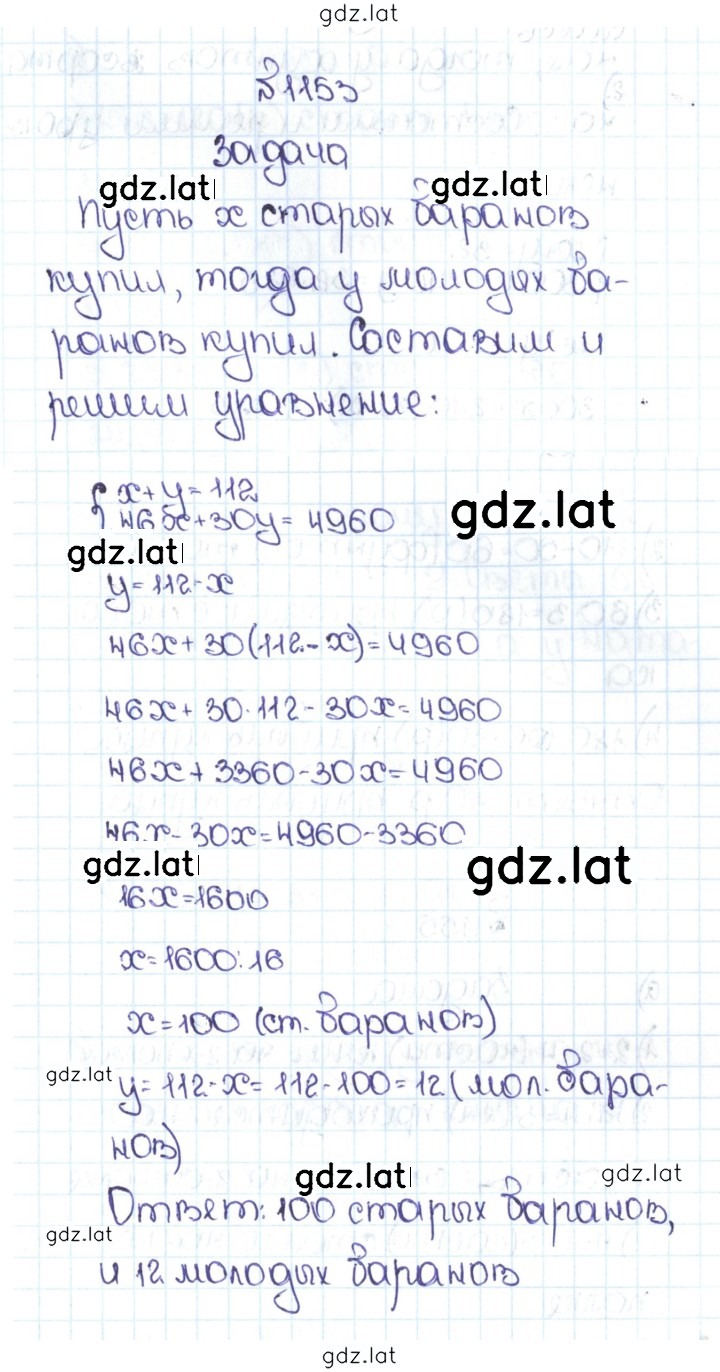 gdz.lat
№1153
Задача
gdz.lat
gdz.lat
Пусть x старых баранов
купил, тогда y молодых ба-
ранов купил. Составим и
решим уравнение:
{ x+y=112
46x+30y=4960
gdz.lat
gdz.lat
y=112-x
46x+30(112-x)=4960
46x+30·112-30x=4960
46x+3360-30x=4960
46x-30x=4960-3360
gdz.lat
gdz.lat
16x=1600
x=1600:16
x=100 (ст. баранов)
gdz.lat
y=112-x=112-100=12 (мол. бара-
нов)
gdz.lat
gdz.lat
Ответ: 100 старых баранов,
gdz.lat
и 12 молодых баранов
gdz.lat